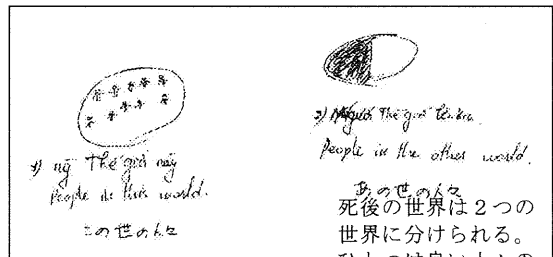 1) ng Thế giới này
People in this world.
この世の人々
2) Người Thế giới bên kia
People in the other world.
あの世の人々
死後の世界は2つの
世界に分けられる。